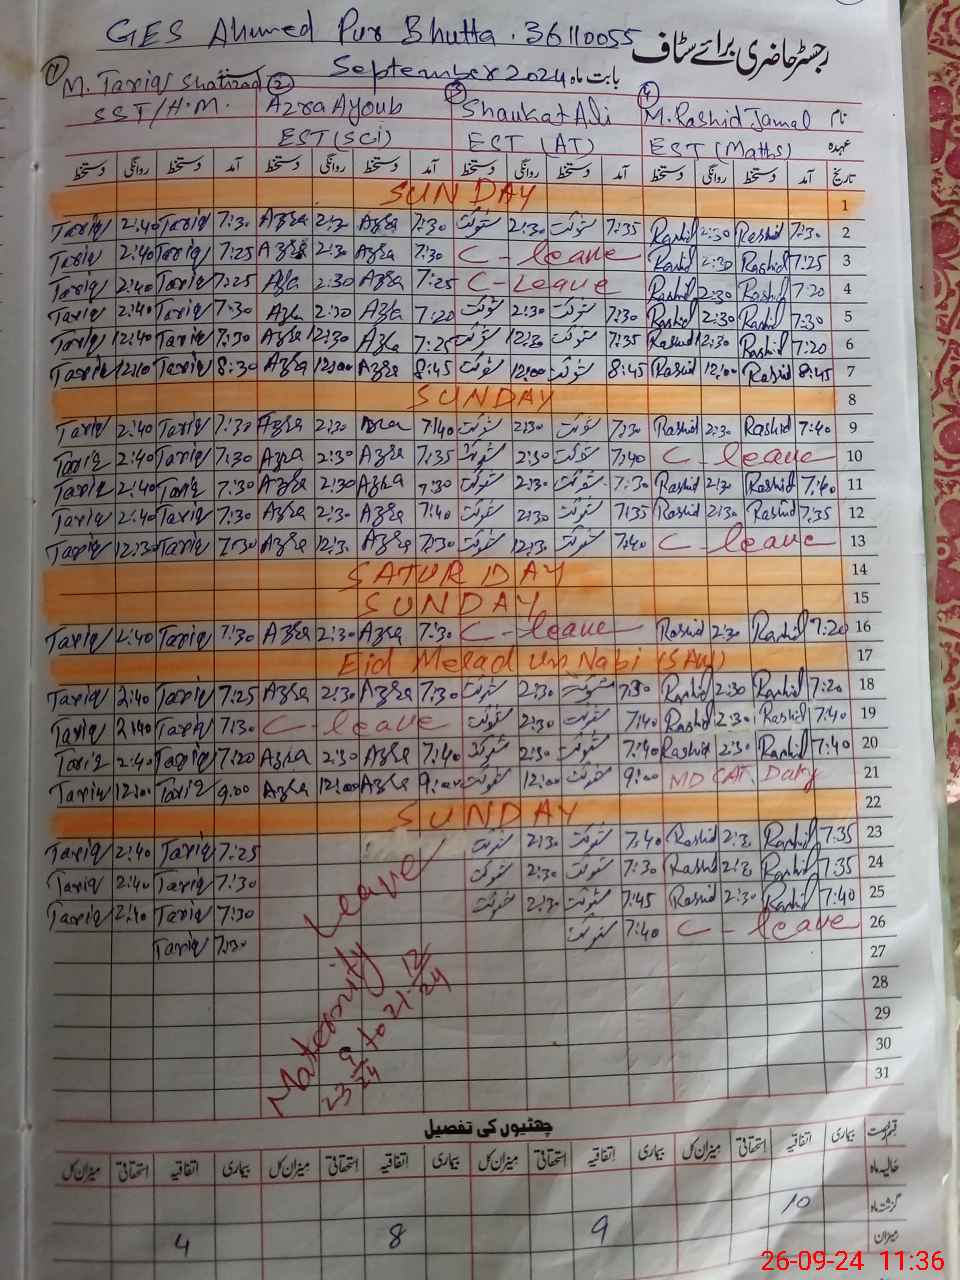 GES Ahmed Pur Bhutta . 36110055 رجسٹر حاضری برائے سٹاف
بابت ماہ September 2024
① M. Tariq Shahzad ② Azra Ayoub ③ Shaukat Ali ④ M. Rashid Jamal نام
SST/H.M. EST (SCi) EST (AT) EST (Maths) عہدہ
دستخط روانگی دستخط آمد دستخط روانگی دستخط آمد دستخط روانگی دستخط آمد دستخط روانگی دستخط آمد تاریخ
SUNDAY 1
Tariq 2:40 Tariq 7:30 Azra 2:30 Azra 7:30 شوکت 2:30 شوکت 7:35 Rashid 2:30 Rashid 7:30 2
Tariq 2:40 Tariq 7:25 Azra 2:30 Azra 7:30 C-leave Rashid 2:30 Rashid 7:25 3
Tariq 2:40 Tariq 7:25 Azra 2:30 Azra 7:25 C-Leave Rashid 2:30 Rashid 7:20 4
Tariq 2:40 Tariq 7:30 Azra 2:30 Azra 7:20 شوکت 2:30 شوکت 7:30 Rashid 2:30 Rashid 7:30 5
Tariq 12:40 Tariq 7:30 Azra 12:30 Azra 7:25 شوکت 12:30 شوکت 7:35 Rashid 12:30 Rashid 7:20 6
Tariq 12:10 Tariq 8:30 Azra 12:00 Azra 8:45 شوکت 12:00 شوکت 8:45 Rashid 12:00 Rashid 8:45 7
SUNDAY 8
Tariq 2:40 Tariq 7:30 Azra 2:30 Azra 7:40 شوکت 2:30 شوکت 7:30 Rashid 2:30 Rashid 7:40 9
Tariq 2:40 Tariq 7:30 Azra 2:30 Azra 7:35 شوکت 2:30 شوکت 7:40 C-leave 10
Tariq 2:40 Tariq 7:30 Azra 2:30 Azra 7:30 شوکت 2:30 شوکت 7:30 Rashid 2:30 Rashid 7:40 11
Tariq 2:40 Tariq 7:30 Azra 2:30 Azra 7:40 شوکت 2:30 شوکت 7:35 Rashid 2:30 Rashid 7:35 12
Tariq 12:30 Tariq 7:30 Azra 12:30 Azra 7:30 شوکت 12:30 شوکت 7:40 C-leave 13
SATURDAY 14
SUNDAY 15
Tariq 2:40 Tariq 7:30 Azra 2:30 Azra 7:30 C-leave Rashid 2:30 Rashid 7:20 16
Eid Melad un Nabi (SAW) 17
Tariq 2:40 Tariq 7:25 Azra 2:30 Azra 7:30 شوکت 2:30 شوکت 7:30 Rashid 2:30 Rashid 7:20 18
Tariq 2:40 Tariq 7:30 C-leave شوکت 2:30 شوکت 7:40 Rashid 2:30 Rashid 7:40 19
Tariq 2:40 Tariq 7:20 Azra 2:30 Azra 7:40 شوکت 2:30 شوکت 7:40 Rashid 2:30 Rashid 7:40 20
Tariq 12:00 Tariq 9:00 Azra 12:00 Azra 9:00 شوکت 12:00 شوکت 9:00 MDCAT Duty 21
SUNDAY 22
Tariq 2:40 Tariq 7:25 شوکت 2:30 شوکت 7:40 Rashid 2:30 Rashid 7:35 23
Tariq 2:40 Tariq 7:30 شوکت 2:30 شوکت 7:30 Rashid 2:30 Rashid 7:35 24
Tariq 2:40 Tariq 7:30 شوکت 2:30 شوکت 7:45 Rashid 2:30 Rashid 7:40 25
Tariq 7:30 شوکت 7:40 C-leave 26
27
28
29
30
31
Maternity Leave
23 9/24 to 21 12/24
چھٹیوں کی تفصیل
میزان کل استحقاقی اتفاقیہ بیماری میزان کل استحقاقی اتفاقیہ بیماری میزان کل استحقاقی اتفاقیہ بیماری میزان کل استحقاقی اتفاقیہ بیماری قسم رخصت
حالیہ ماہ
10 گزشتہ ماہ
4 8 9 میزان
26-09-24 11:36